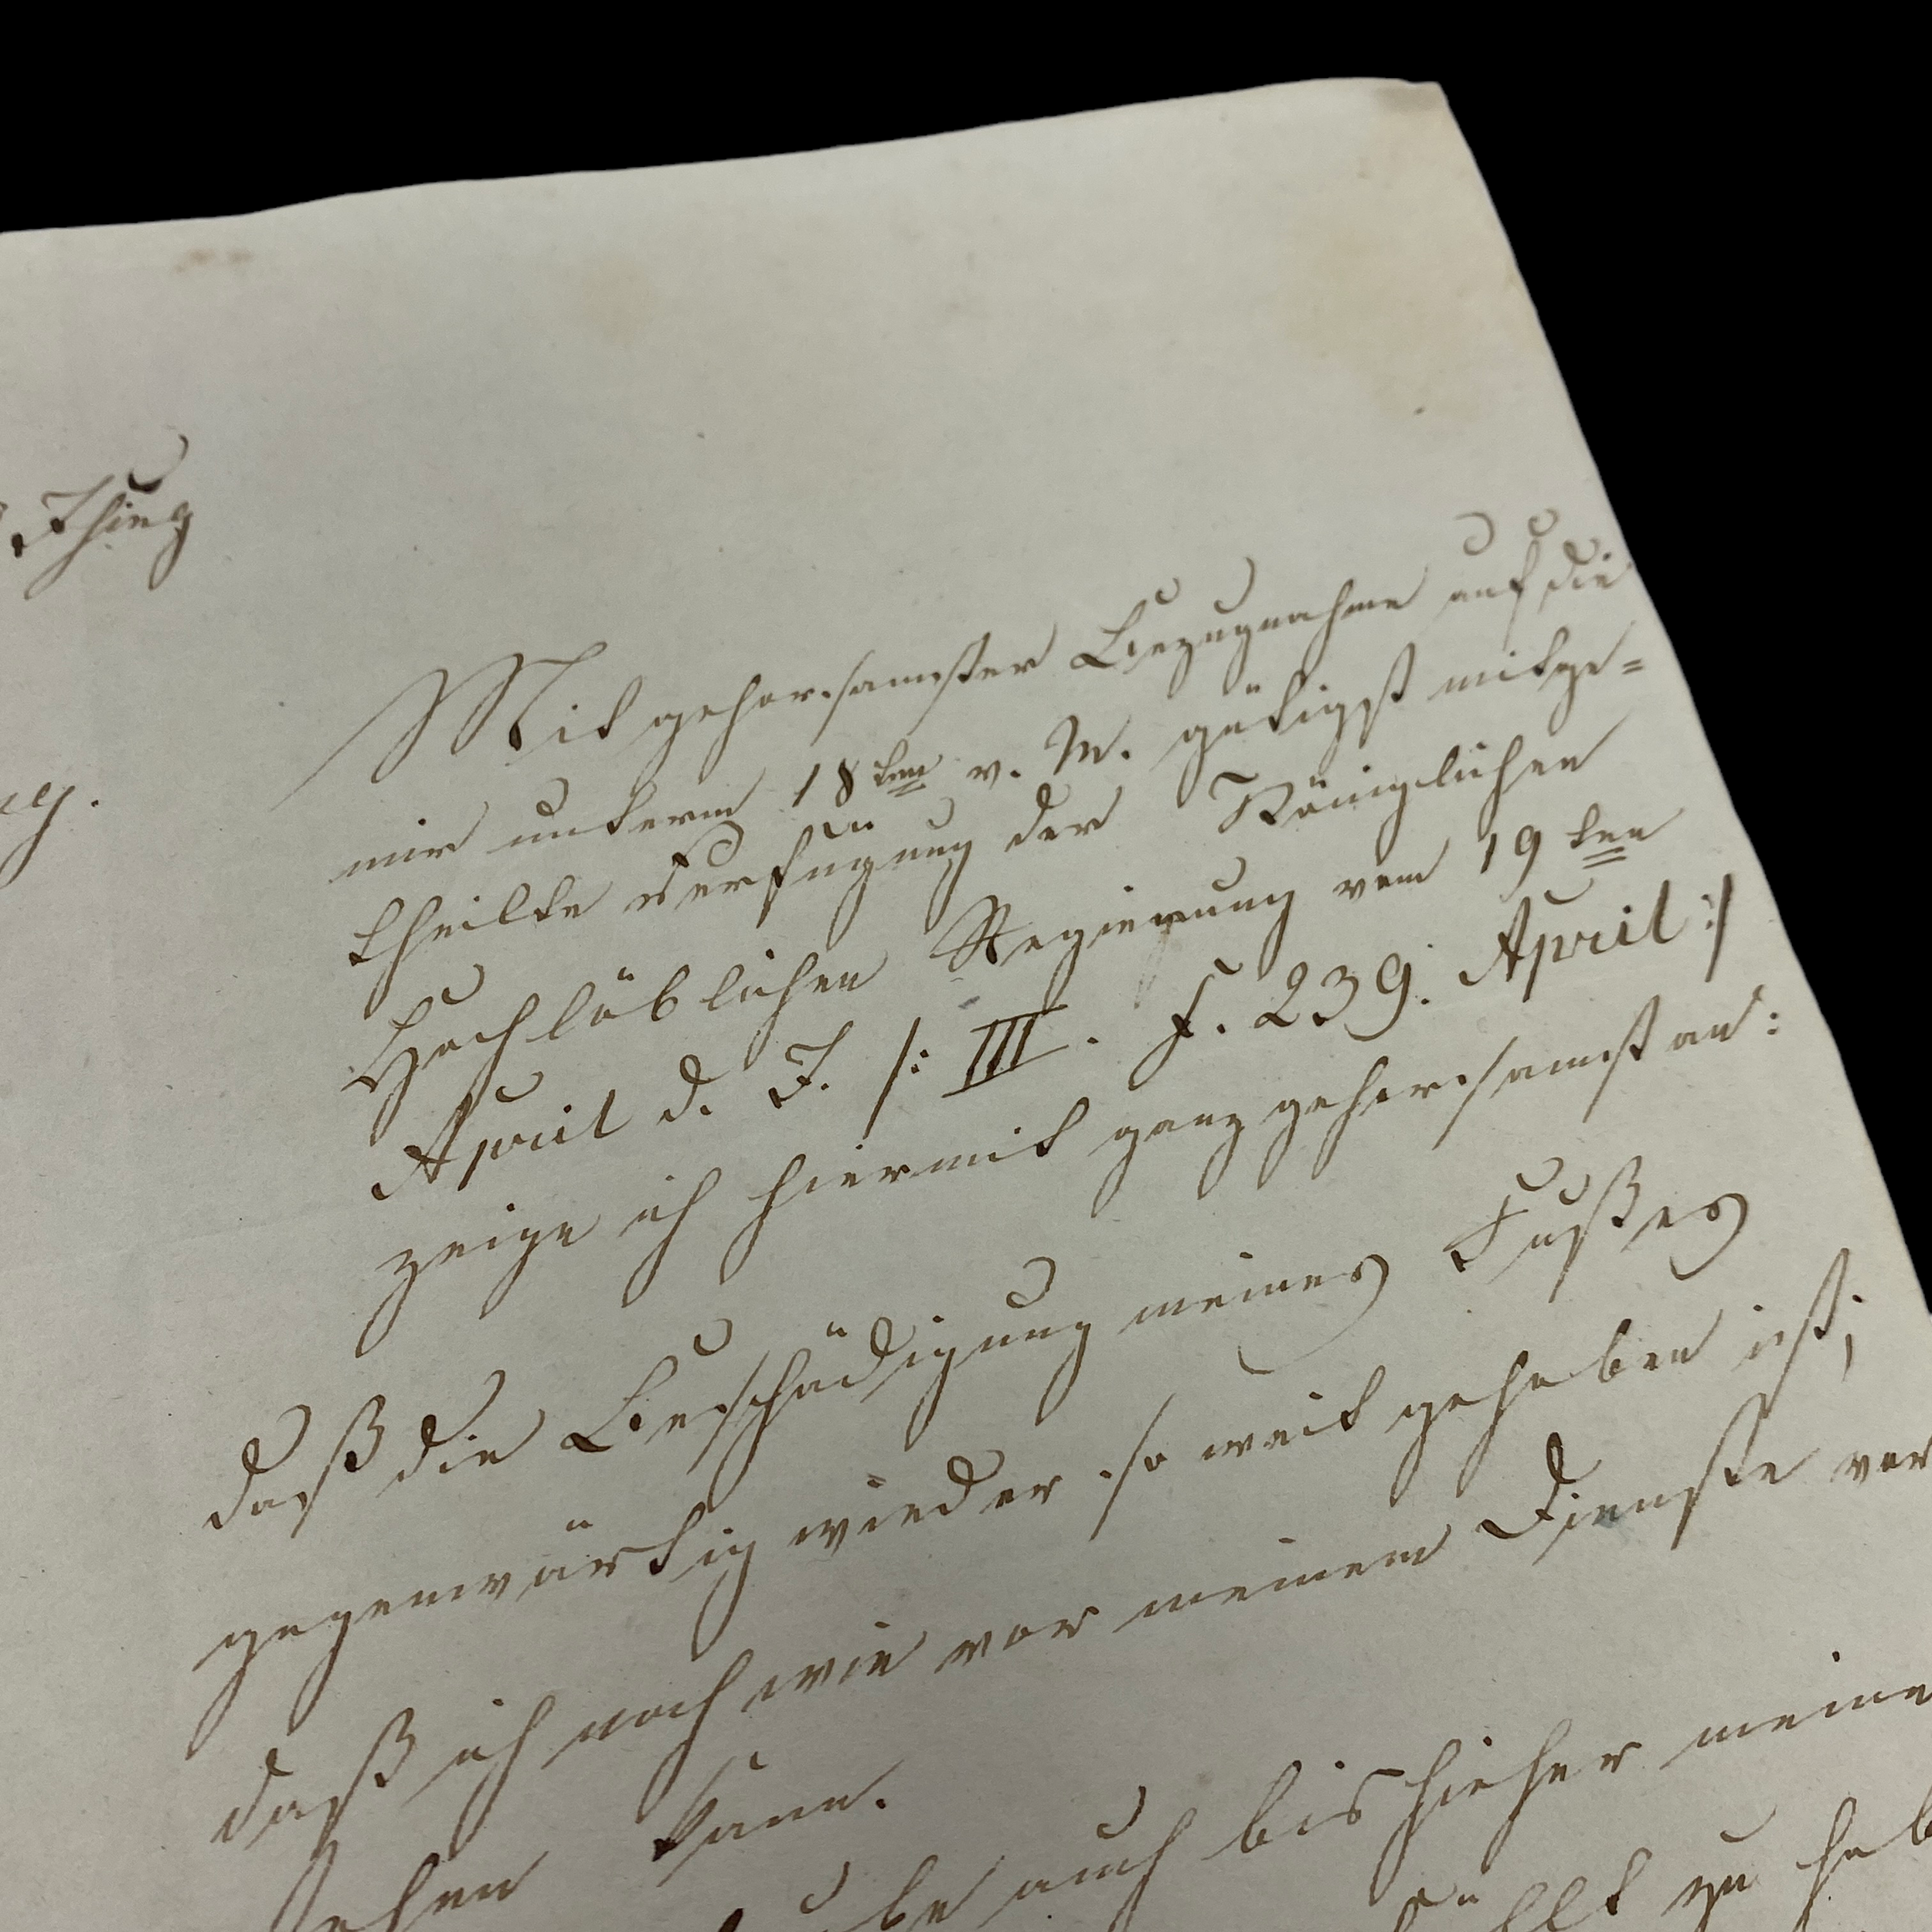 Mit gehorsamster Bezugnahme auf die
mir unterm 18ten v. M. gütigst mitge=
theilte Verfügung der Königlichen
Hochlöblichen Regierung vom 19ten
April d. J. /: III. F. 239. April :/
zeige ich hiermit ganz gehorsamst an:
daß die Beschädigung meines Fußes
gegenwärtig wieder so weit gehoben ist;
daß ich nach wie vor meinem Dienste vor
kann.
auch bis hieher meine
zu hab